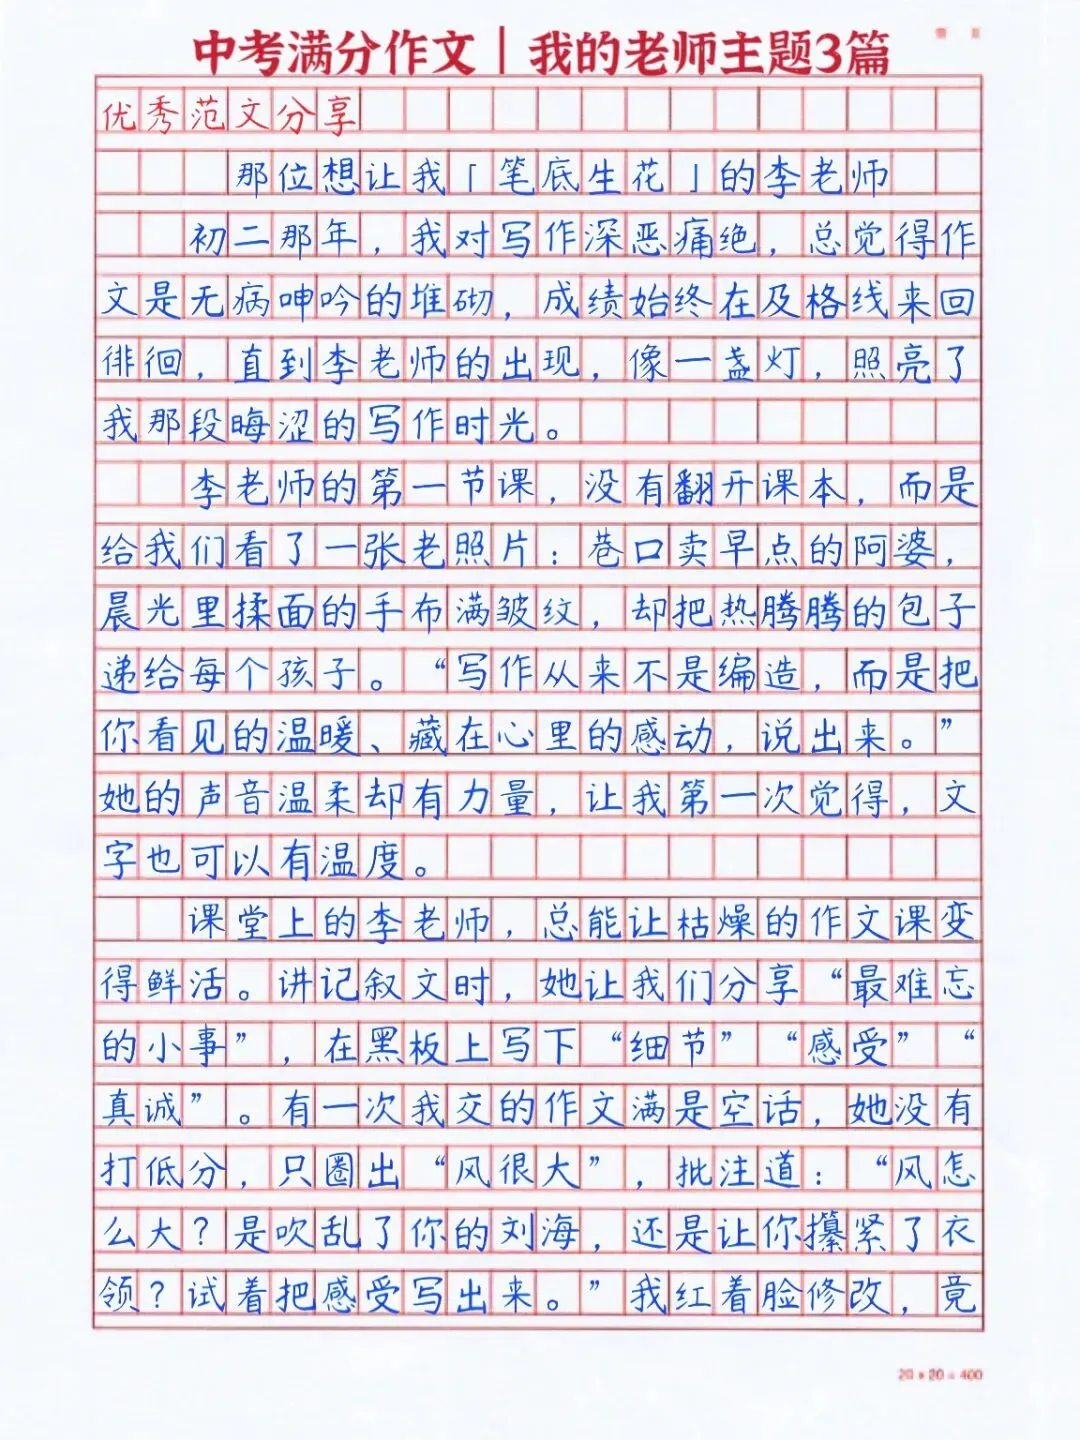 中考满分作文|我的老师主题3篇
优秀范文分享
那位想让我「笔底生花」的李老师
初二那年，我对写作深恶痛绝，总觉得作
文是无病呻吟的堆砌，成绩始终在及格线来回
徘徊，直到李老师的出现，像一盏灯，照亮了
我那段晦涩的写作时光。
李老师的第一节课，没有翻开课本，而是
给我们看了一张老照片：巷口卖早点的阿婆，
晨光里揉面的手布满皱纹，却把热腾腾的包子
递给每个孩子。“写作从来不是编造，而是把
你看见的温暖、藏在心里的感动，说出来。”
她的声音温柔却有力量，让我第一次觉得，文
字也可以有温度。
课堂上的李老师，总能让枯燥的作文课变
得鲜活。讲记叙文时，她让我们分享“最难忘
的小事”，在黑板上写下“细节”“感受”“
真诚”。有一次我交的作文满是空话，她没有
打低分，只圈出“风很大”，批注道：“风怎
么大？是吹乱了你的刘海，还是让你攥紧了衣
领？试着把感受写出来。”我红着脸修改，竟
20×20=400